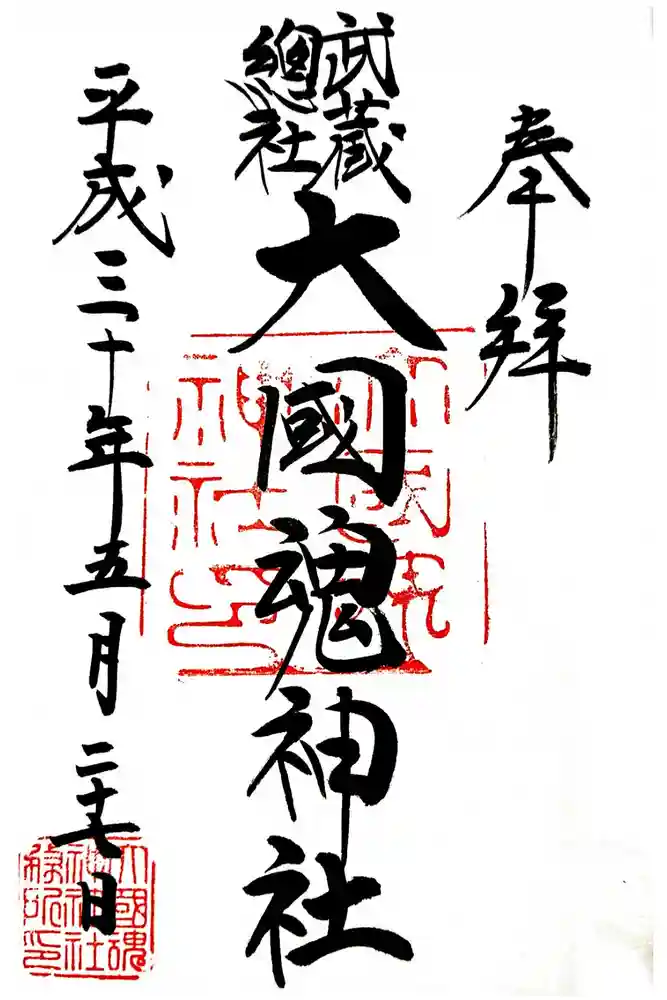 奉拜
武蔵
總社
大國魂神社
平成三十年五月二十七日
大國魂
神社印
大國魂
神神社